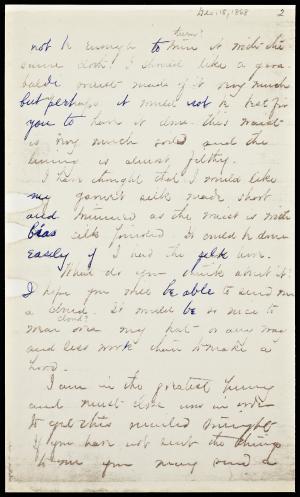 Dec. 18, 1868 2
turns?
not be enough to trim it with the
same cloth. I should like a gara
baldi waist made of it very much
but perhaps it would not be best for
you to have it done. this waist
is very much soiled and the
lining is almost filthy.
I have thought that I would like
my garnet silk made short
and trimmed as the waist is with
bias silk pinked. It could be done
easily if I need the silk
What do you think about it?
I hope you will be able to send me
a cloud. It would be so nice to
cloud?
wear over my hat or any way
and less work than to make a
hood.
I am in the greatest hurry
and must close now in order
to get this mailed tonight
If you have not sent the things
to me you may send a